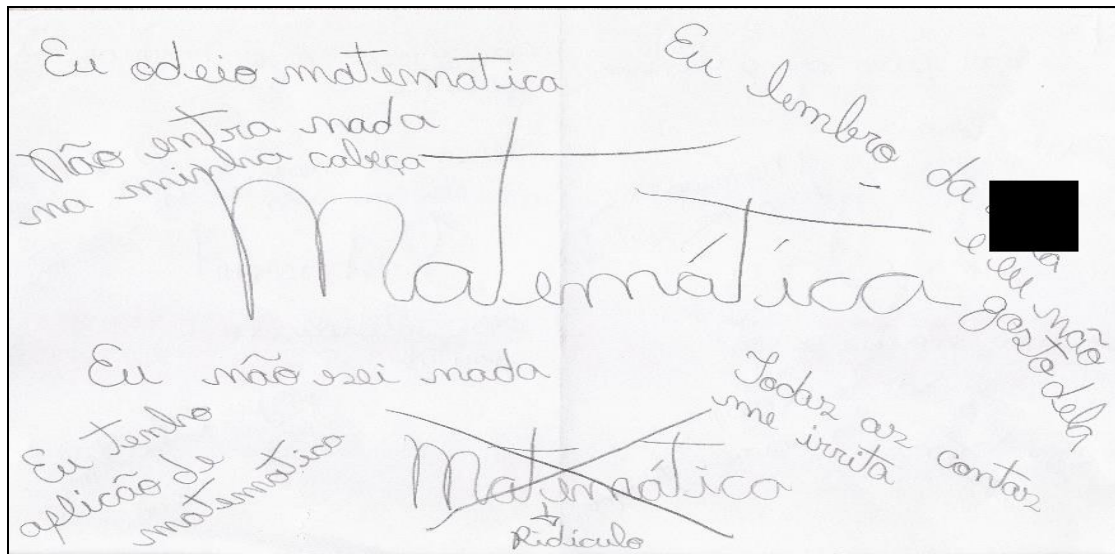 Eu odeio matematica
Não entra nada
na minha cabeça
Matemática
Eu lembro da
e eu não
gosto dela
Eu não sei nada
Eu tenho
aplicão de
matematica
Matemática
Ridiculo
Todas as contas
me irrita